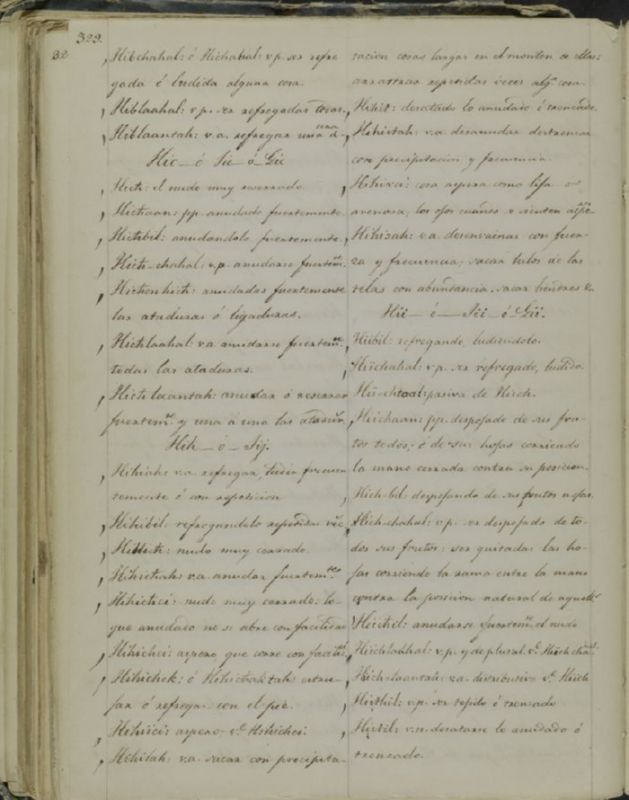 323.
32
Hibchahal: ó Hichabal: v.p. ser refre
gada ó ludida alguna cosa.
Hiblaahal: v.p. ser refregadas cosas.
Hiblaantah: v.a. refregar una á una
Hic_ ó Jic_ ó_ Gic
Hich: el nudo muy
Hichaan: pp. anudado fuertemente
Hichbil: anudandolo fuertemente.
Hich-chahal: v.p. anudarse fuertemte.
Hichonhich: anudadas fuertemente
las ataduras ó ligaduras.
Hichlaahal: v.a. anudarse fuertemte.
todas las ataduras.
Hichlaantah: anudar ó
fuertemte. y una á una las ataduras
Hih_ ó_ Jij.
Hihiah: v.a. refregar, ludir frecuen
temente ó con reposicion
Hihibil: refregandolo repetidas vece
nudo muy cerrado.
Hihichah: v.a. anudar fuertemte.
Hihichci: nudo muy cerrado: lo
que anudado no se abre con facilidad
Hihichci: aspero que corre con
Hihichek: ó
jar ó refregar con el pie.
aspero. ve.
Hihitah: v.a. sacar con precipita-
sacion cosas largas en el monton de ellas:
arrastrar repetidas veces alga. cosa.
Hihit: desatado lo anudado ó trenzado.
Hihitah: v.a. desanudar destrenzar
con precipitacion y frecuencia.
cosa aspera como lija ó
arenosa; los ojos cuándo se sienten
Hihizah: v.a. desenvainar con fuer-
za y frecuencia; sacar hilos de las
telas con abundancia. sacar
Hii_ ó_ Jii_ ó_ Gii.
Hiibil: refregando, ludiendolo.
Hiichahal: v.p. ser refregado, ludido.
pasiva de Hiich.
Hiichaan: pp. despojado de sus fru-
tos todos, ó de sus hojas corriendo
la mano cerrada contra su posicion.
Hiich-bil: despojando de sus frutos u ojas.
Hiich-chahal: v.p. ser despojado de to-
dos sus frutos: ser quitadas las ho-
jas corriendo la rama entre la mano
contra la posicion natural de aquella
anudarse fuertemte. el nudo
Hiichlaahal: v.p. y de plural. ve.
Hiich-laantah: v.a. distributivo ve. Hiich
v.p. ser tejido ó trenzado
v.n. desatarse lo anudado ó
trenzado.